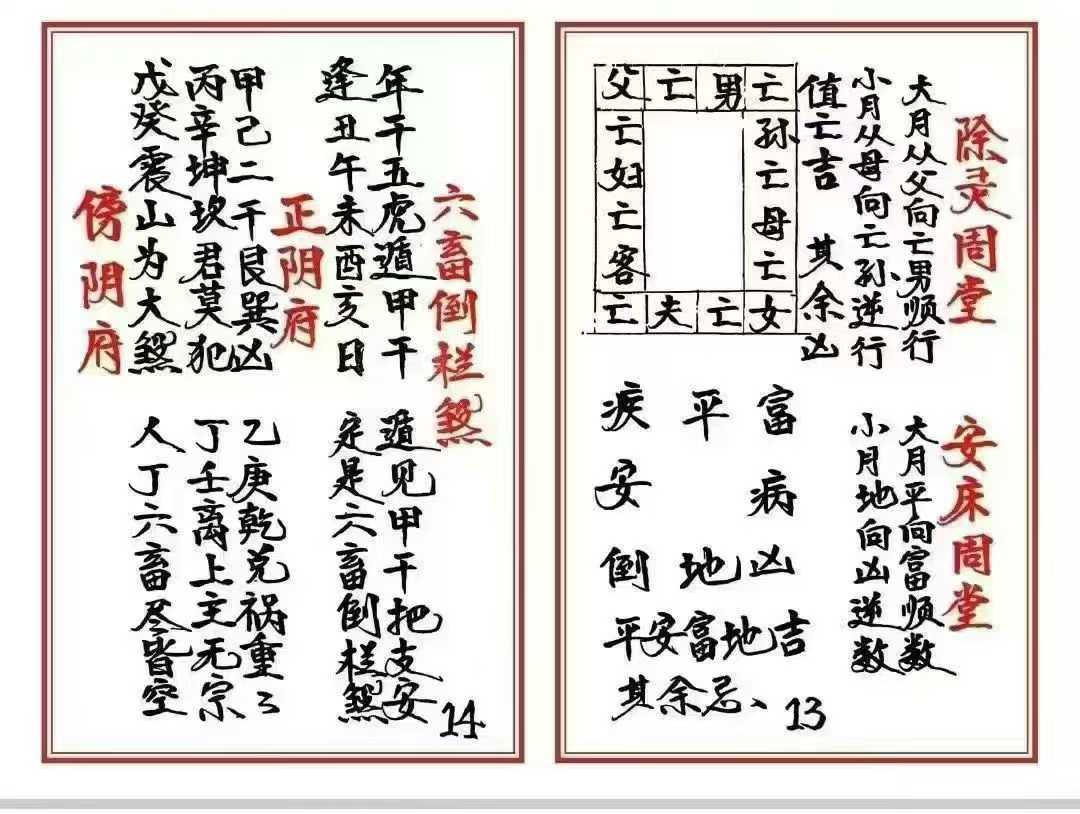 除灵周堂
大月从父向亡男顺行
小月从母向亡孙逆行
值亡吉 其余凶
父亡男亡
孙亡母亡
亡妇亡客
亡夫亡女
安床周堂
大月平向富顺数
小月地向凶逆数
平 富
安 病
倒 地 凶
平安富地吉
其余忌、13
六畜倒栏煞
年干五虎遁甲干 遁见甲干把支安
逢丑午未酉亥日 定是六畜倒栏煞
正阴府
甲己二干艮巽凶 乙庚乾兑祸重々
丙辛坤坎君莫犯 丁壬离上主无宗
戊癸震山为大煞 人丁六畜尽皆空
傍阴府
14